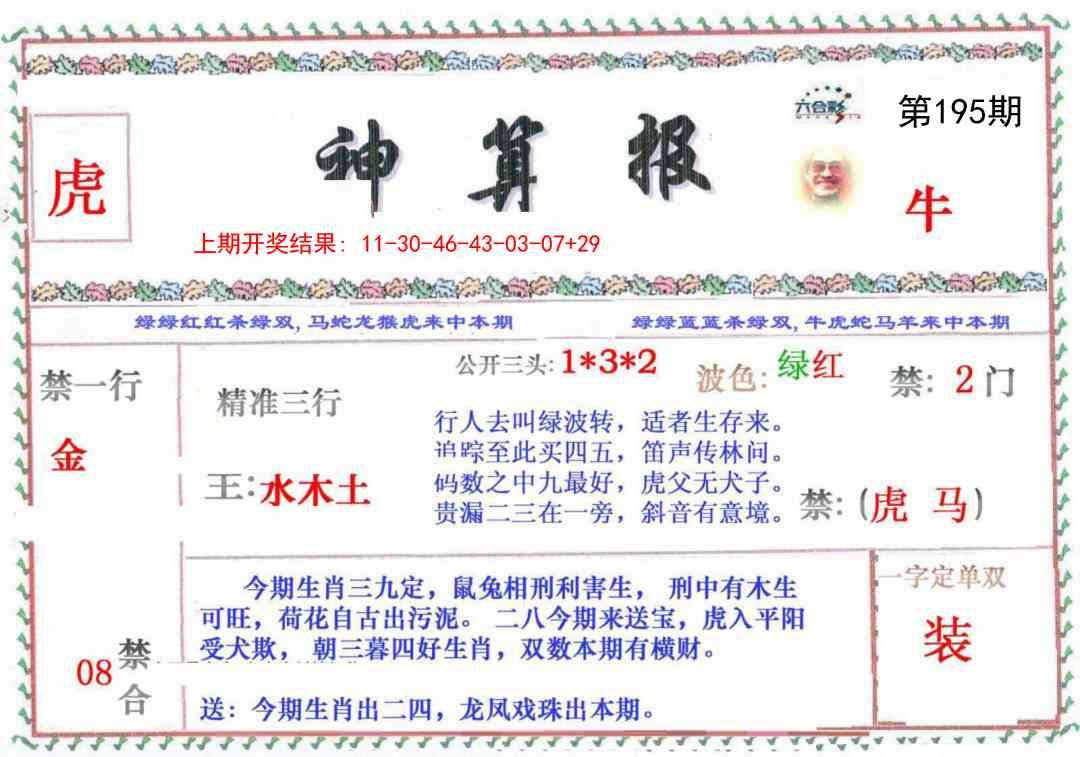 六合彩
第195期
虎
神算报
牛
上期开奖结果: 11-30-46-43-03-07+29
绿绿红红杀绿双,马蛇龙猴虎来中本期
绿绿蓝蓝杀绿双,牛虎蛇马羊来中本期
公开三头:1*3*2
波色:绿红
禁: 2门
禁一行
金
精准三行
王:水木土
行人去叫绿波转，适者生存来。
追踪至此买四五，笛声传林问。
码数之中九最好，虎父无犬子。
贵漏二三在一旁，斜音有意境。
禁:(虎 马)
今期生肖三九定，鼠兔相刑利害生， 刑中有木生
可旺，荷花自古出污泥。 二八今期来送宝，虎入平阳
受犬欺， 朝三暮四好生肖，双数本期有横财。
送：今期生肖出二四，龙凤戏珠出本期。
08
禁
合
一字定单双
装